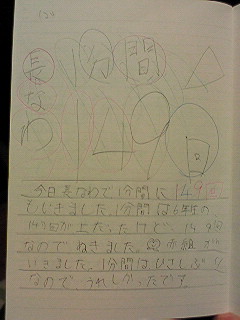 長1分間
なわ149回
今日長なわで1分間に149回
もいきました。1分間は6年生の
が上だったけど、149
なのでぬきました。赤組が
いきました。1分間はひさしぶり
なのでうれしかったです